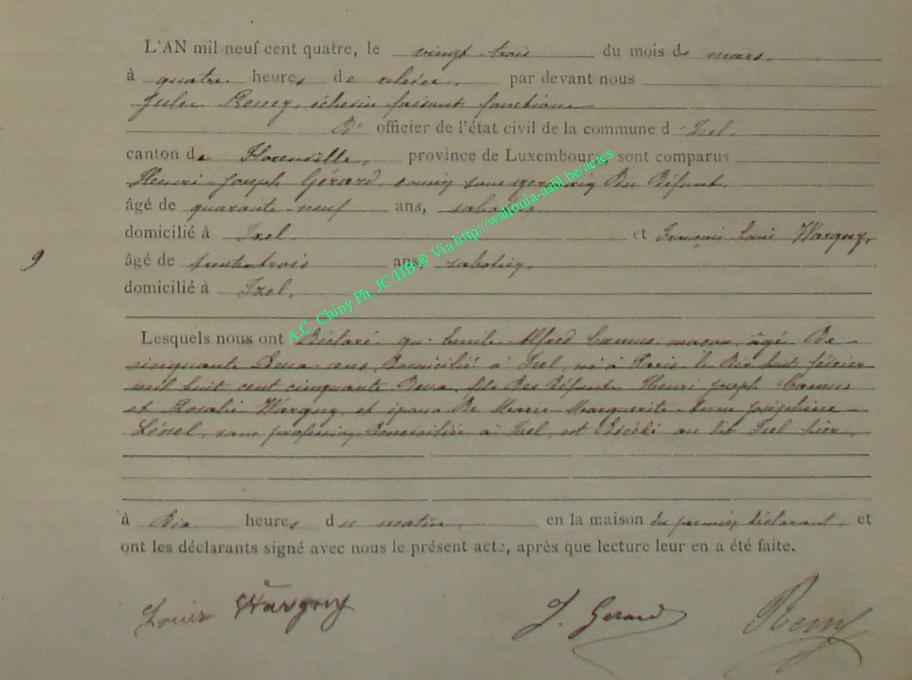 L'AN mil neuf cent quatre, le vingt trois du mois de mars,
à quatre heures de relevée, par devant nous
Jules Remy, échevin faisant fonctions
d' officier de l'état civil de la commune d'Izel,
canton de Florenville, province de Luxembourg, sont comparus
Henri-Joseph Gérard, cousin sous germain du défunt,
âgé de quarante-neuf ans,
domicilié à Izel, et François Louis Wargny,
9
âgé de trente trois ans, sabotier,
domicilié à Izel,
Lesquels nous ont déclaré que Emile-Alfred Camus, maçon, âgé de
cinquante deux ans, domicilié à Izel, né à Paris le dix huit février
mil huit cent cinquante deux, fils des défunts Henri Joseph Camus
et Rosalie Wargny, et époux de Marie-Marguerite-Anne Joséphine
sans profession, domiciliée à Izel, est décédé au dit Izel hier,
à dix heures du matin, en la maison du premier déclarant, et
ont les déclarants signé avec nous le présent acte, après que lecture leur en a été faite.
Louis Wargny J. Gerard Remy
A.C. Chiny Ph. JC/HB® Via http://wallonia-asbl.be/actes